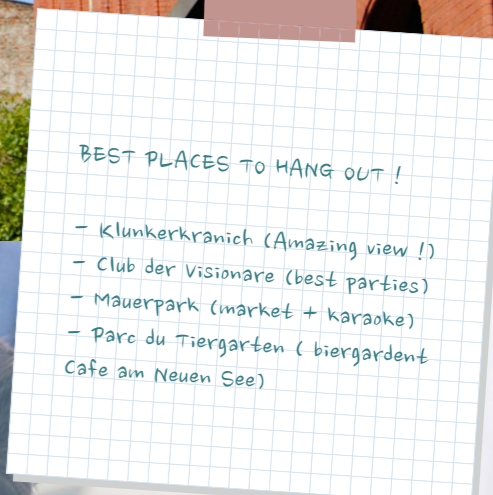 BEST PLACES TO HANG OUT !
- Klunkerkranich (Amazing view !)
- Club der Visionare (best parties)
- Mauerpark (market + karaoke)
- Parc du Tiergarten ( biergardent
Cafe am Neuen See)